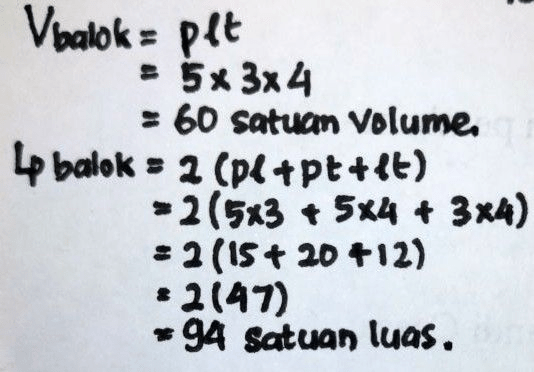 Vbalok = plt
= 5 x 3 x 4
= 60 satuan volume.
Lp balok = 2 (pl + pt + lt)
= 2(5x3 + 5x4 + 3x4)
= 2(15 + 20 + 12)
= 2(47)
= 94 satuan luas.